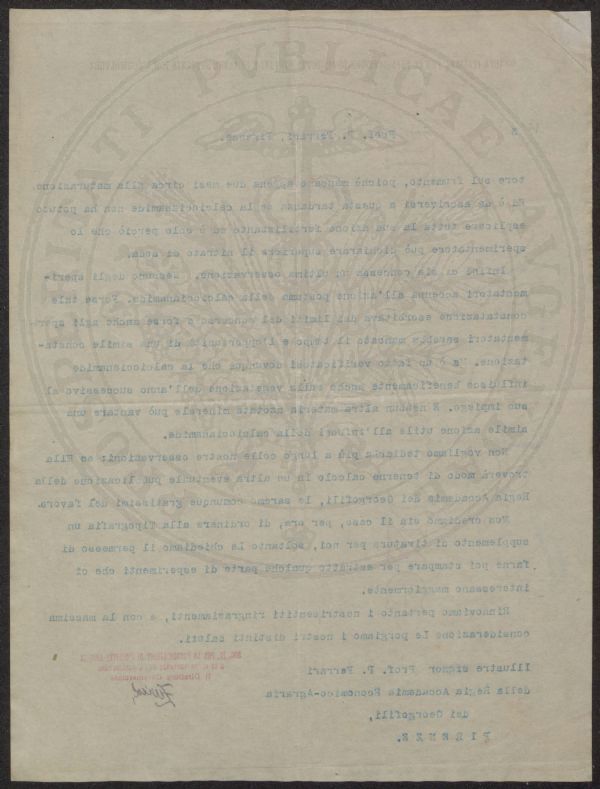 3
Prof. P. Ferrari, Firenze.
tore sul frumento, poichè mancano appena due mesi circa alla maturazione
Ed è da ascriversi a questa tardanza se la calciocianamide non ha potuto
esplicare tutta la sua azione fertilizzante ed è solo perciò che lo
sperimentatore può dichiarare superiore il nitrato di soda.
Infine ci sia concessa un'ultima osservazione. Nessuno degli speri-
mentatori accenna all'azione postuma della calciocianamide. Forse tale
constatazione esorbitava dai limiti del concorso o forse anche agli spe-
mentatori sarebbe mancato il tempo e l'opportunità di una simile consta-
tazione. Ma è un fatto verificatosi dovunque che la calciocianamide
influisce beneficamente anche sulla vegetazione dell'anno successivo al
suo impiego. E nessun altra materia azotata minerale può vantare una
simile azione utile all'infuori della calciocianamide.
Non vogliamo tediarLa più a lungo colle nostre osservazioni: se Ella
troverà modo di tenerne calcolo in un altra eventuale pubblicazione della
Regia Accademia dei Georgofili, le saremo comunque gratissimi del favore.
Non crediamo sia il caso, per ora, di ordinare alla Tipografia un
supplemento di tiratura per noi, soltanto La chiediamo il permesso di
farne poi stampare per estratto qualche parte di esperimenti che ci
interessano maggiormente.
Rinnoviamo pertanto i nostri sentiti ringraziamenti, e con la massima
considerazione Le porgiamo i nostri distinti saluti.
Illustre Signor Prof. P. Ferrari
della Regia Accademia Economico-Agraria
dei Georgofili,
FIRENZE.
SOC. IT. PER LA FABBRICAZIONE DI PRODOTTI AZOTATI
Il Direttore